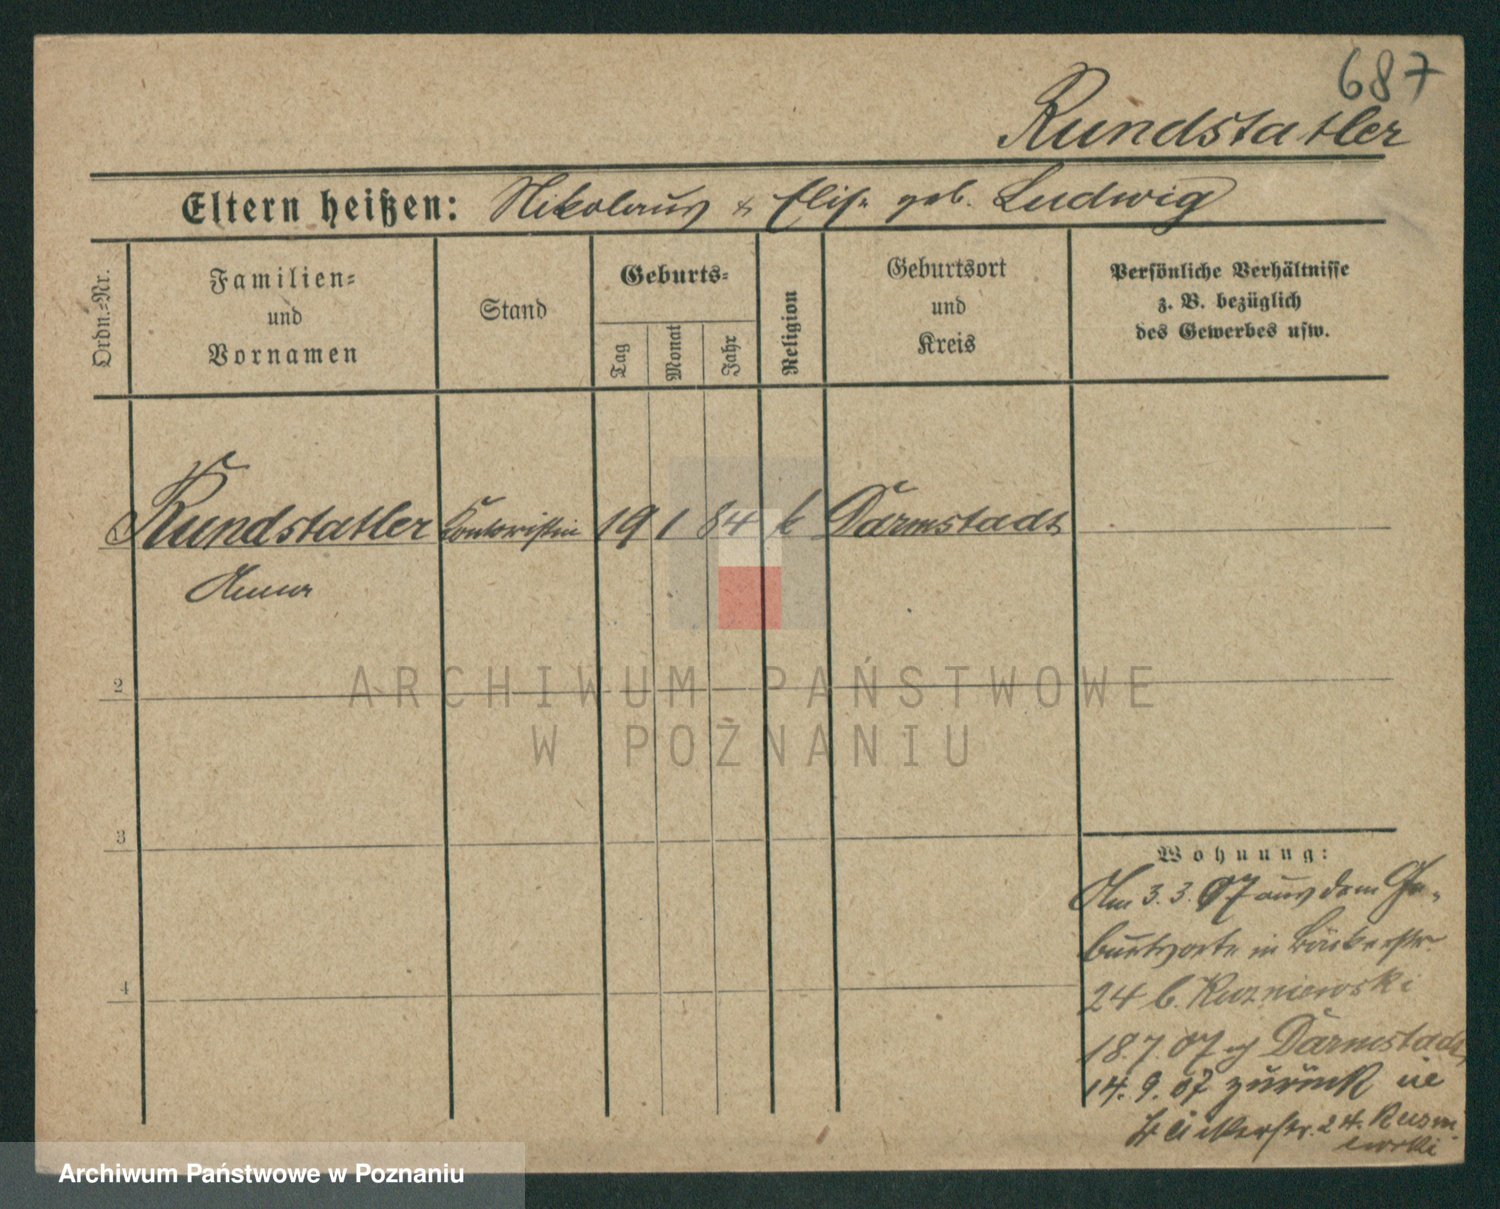 687
Rundstatler
Eltern heißen: Nikolaus & Elise geb. Ludwig
Ordn.-Nr.
Familien- und Vornamen
Stand
Geburts-
Tag
Monat
Jahr
Religion
Geburtsort und Kreis
Persönliche Verhältnisse
z. B. bezüglich
des Gewerbes usw.
Rundstatler Kontoristin 19 1 84 k Darmstadt
Anna
2
3
4
Wohnung:
Am 3.3.07 aus dem Ge-
burtsorte in Bäckerstr.
24 b. Kuzniewski
18.7.07 Darmstadt
14.9.07 zurück
Bäckerstr. 24.
ARCHIWUM PAŃSTWOWE
W POZNANIU
Archiwum Państwowe w Poznaniu